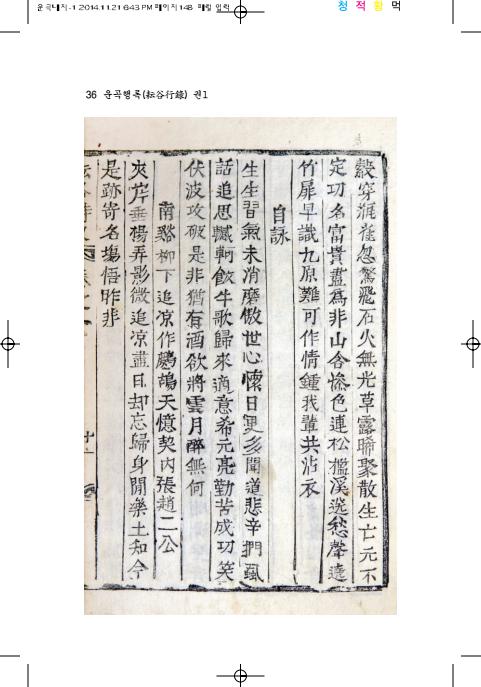 운곡대지-1 2014.11.21 6:43 PM 페이지148 매킬 입력
청 적 황 먹
36 운곡행록(耘谷行錄) 권1
縠穿瓶雀忽驚飛石火無光草露晞聚散生亡元不
定功名富貴盡爲非山含慘色連松檻溪送愁聲遶
竹扉早識九原難可作情鍾我輩共沾衣
自詠
生生習氣未消磨傲世心懷日更多聞道悲辛捫虱
話追思轗軻飯牛歌歸來適意希元亮勤苦成功笑
伏波攻破是非猶有酒欲將雲月醉無何
南谿柳下追凉作鷓鴣天憶契內張趙二公
夾岸垂楊弄影微追凉盡日却忘歸身閒樂土知今
是跡寄名塲悟昨非